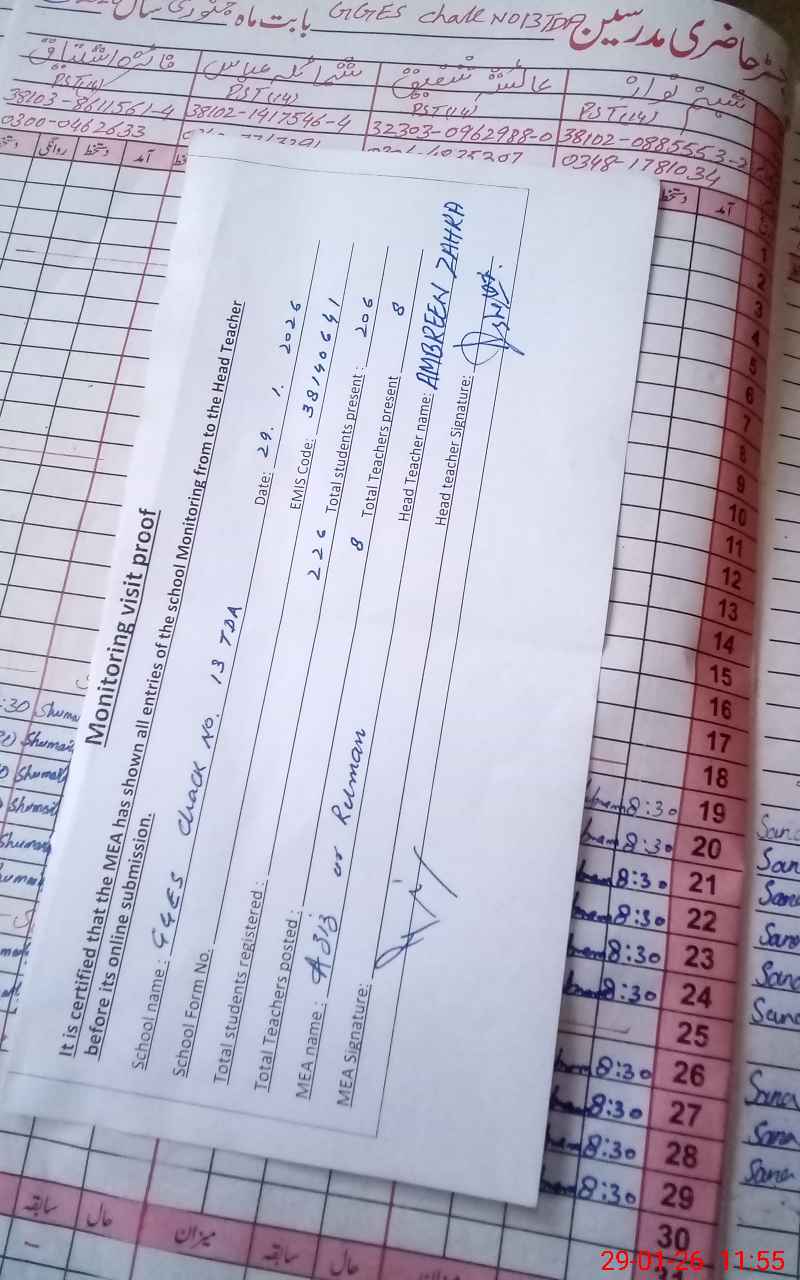 رجسٹر حاضری مدرسین GGES Chak NO 13 TDA بابت ماہ جنوری سال
شمیم نواز
عائشہ شفیق
شمائلہ عباس
فائزہ اشتیاق
PST(14) PST(14) PST(14) PST(14)
38103-8611561-4 38102-1417546-4 32303-0962988-0 38102-0885553-2
0300-0462633 0348-1781034
آمد دستخط روانگی دستخط
Monitoring visit proof
It is certified that the MEA has shown all entries of the school Monitoring from to the Head Teacher
before its online submission.
School name: GGES Chack No. 13 TDA Date: 29. 1. 2026
School Form No. EMIS Code: 38140641
Total students registered: 226 Total students present: 206
Total Teachers posted: 8 Total Teachers present 8
MEA name: Aziz ur Rehman Head Teacher name: AMBREEN ZAHRA
MEA Signature: Head teacher Signature:
1
2
3
4
5
6
7
8
9
10
11
12
13
14
15
16
17
18
8:30 19
8:30 20
8:30 21
8:30 22
8:30 23
8:30 24
25
8:30 26
8:30 27
8:30 28
8:30 29
30
سابقہ حال میزان سابقہ حال میزان
29-01-26 11:55